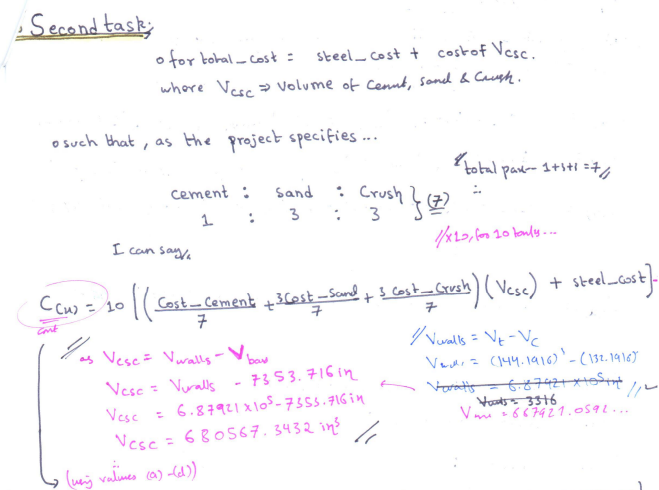 Second task;
o for total_cost = steel_cost + cost of Vcsc.
where Vcsc ⇒ volume of Cement, sand & Crush.
o such that, as the project specifies...
// total part 1+3+3 = 7 //
cement : sand : Crush } (7) ∴
1 : 3 : 3
// x10, for 10 only...
I can say,
C(u) = 10 [ ( Cost_Cement/7 + 3Cost_Sand/7 + 3 Cost_Crush/7 ) (Vcsc) + steel_cost ]
Cost
// as Vcsc = Vwalls - Vbar
Vcsc = Vwalls - 7353.716 in
Vcsc = 6.87921 x 10⁵ - 7353.716 in
Vcsc = 680567.3432 in³ //
// Vwalls = Vt - Vc
Vwalls = (144.1916)³ - (132.1916)³
Vwalls = 6.87921 x 10⁵ in³ //
Vwalls = 3316
= 667921.0592...
(using values (a) - (d))